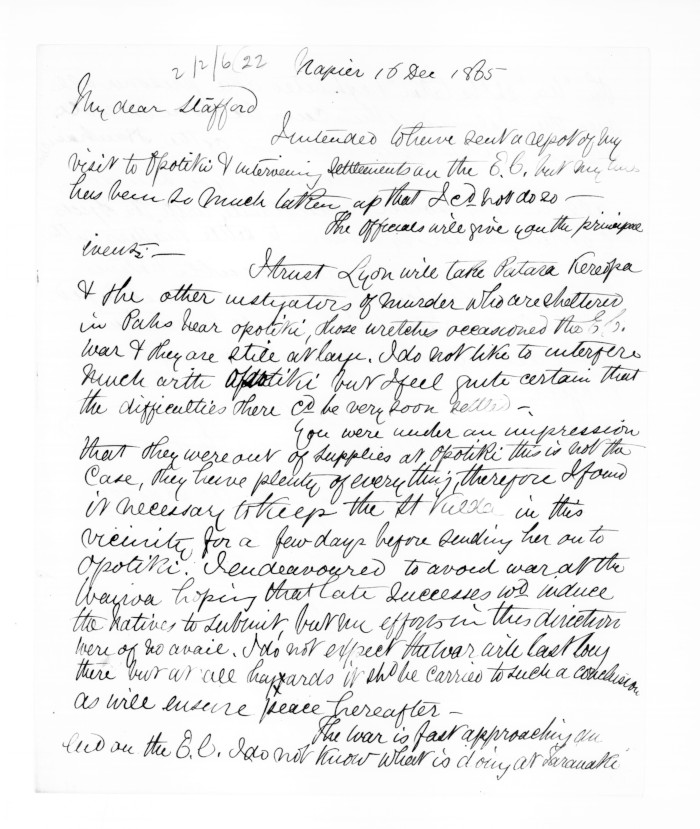 2/2/6(22 Napier 16 Dec 1865
My dear Stafford
I intended to have sent a repot of my
visit to Opotiki & intervening settlements on the E.C. but my time
has been so much taken up that I cd not do so —
The officials will give you the principal
events —
I trust Lyon will take Patara Kereopa
& the other instigators of murder who are sheltered
in Pahs near Opotiki, those wretches occasioned the E.C.
war & they are still at large. I do not like to interfere
much with Opotiki but I feel quite certain that
the difficulties there cd be very soon settled —
You were under an impression
that they were out of supplies at Opotiki this is not the
case, they have plenty of everything, therefore I found
it necessary to keep the St Kilda in this
vicinity for a few days before sending her on to
Opotiki. I endeavoured to avoid war at the
Wairoa hoping that late successes wd induce
the Natives to submit, but my efforts in this direction
were of no avail. I do not expect the war will last long
there but at all hazards it shd be carried to such a conclusion
as will ensure peace hereafter —
The war is fast approaching an
end on the E.C. I do not know what is doing at Taranaki